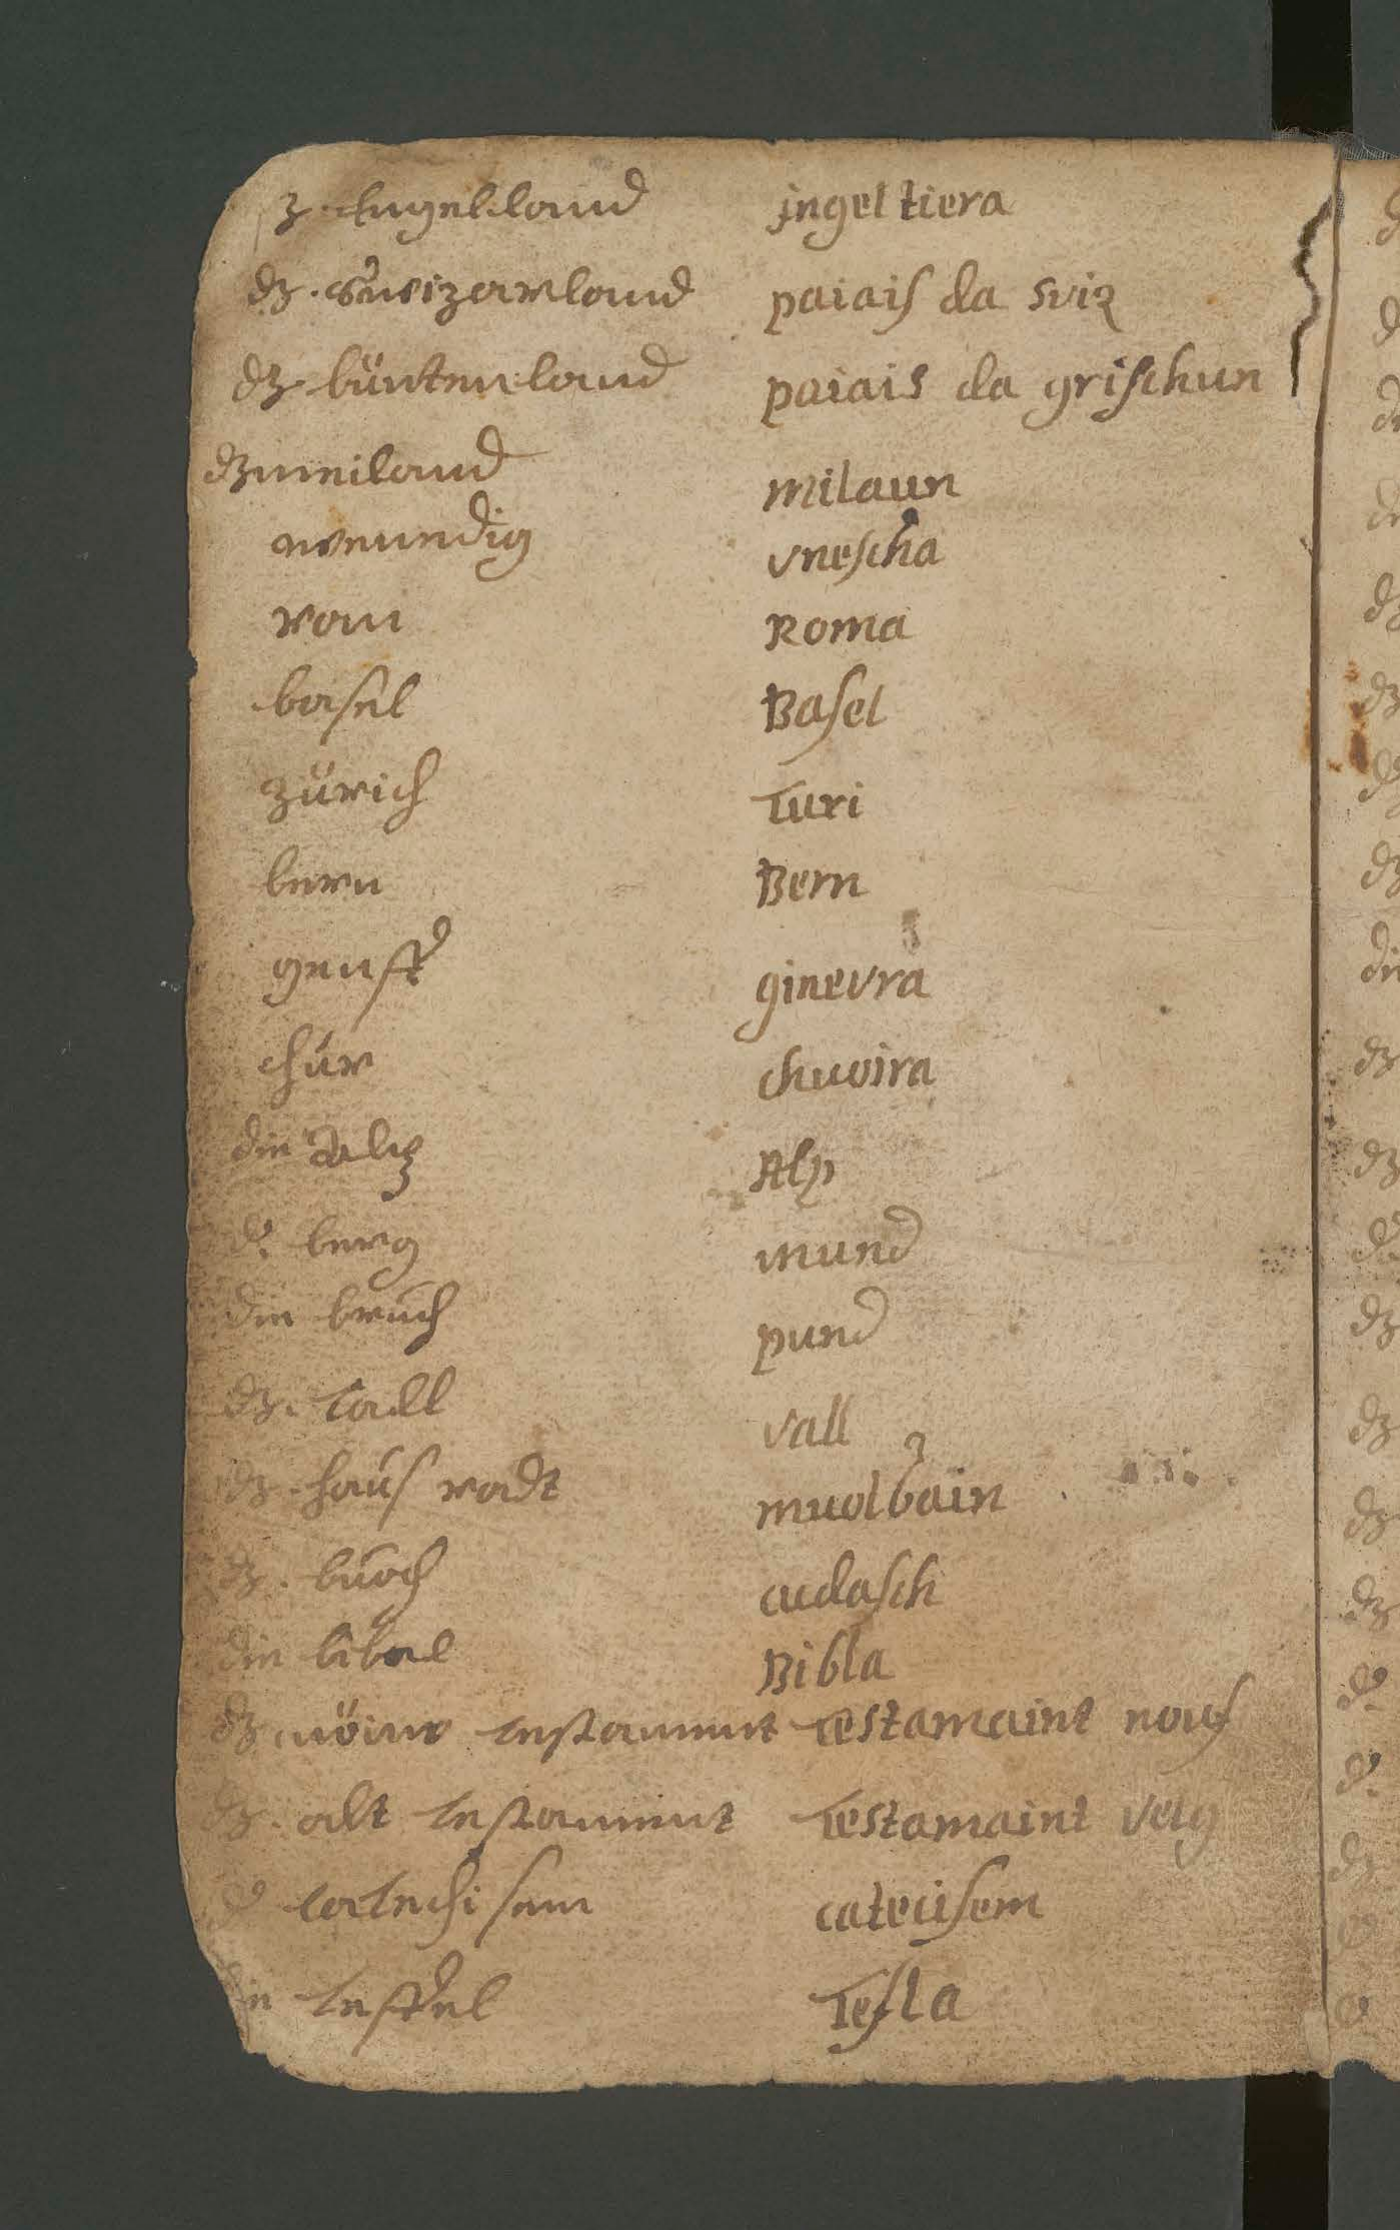 z. Engel.land jngel tiera
dz. Sweizerland paiais da sviz
dz büntenland paiais da grischun
dz meiland milaun
wenendig vnescha
rom Roma
basel Basel
zürich Turi
bern Bern
genff ginevra
chur chuoira
die Alp
d. berg mund
die bruch pund
dz. tall vall
dz. haus radt muolbain
dz. buoch cudasch
die bibel Bibla
dz nöüw testament testamaint nouf
dz. alt testament testamaint velg
d catechisem
die taffel Tefla